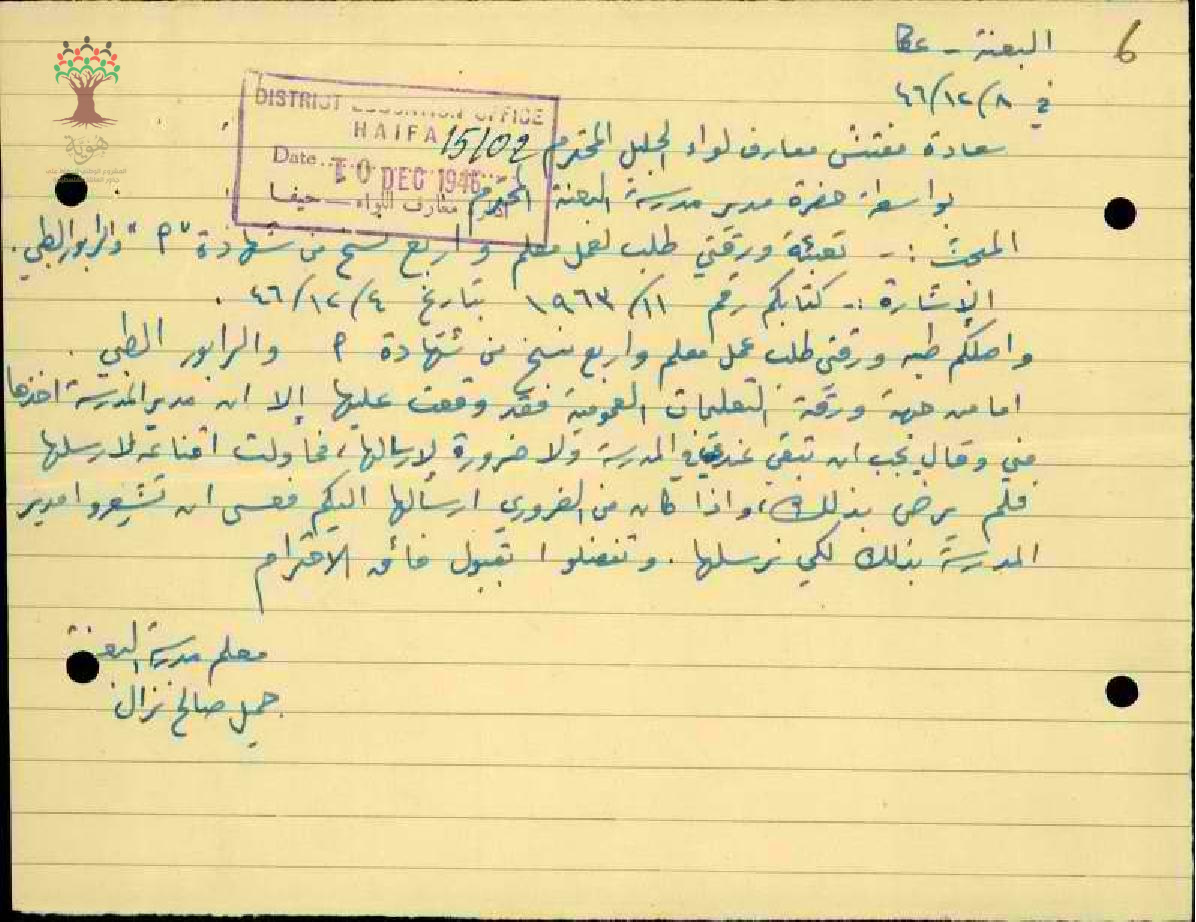 6
البعنة - عكا
في ٤٦/١٢/٨
DISTRICT EDUCATION OFFICE
HAIFA
15/02
Date
10 DEC 1946
معارف اللواء — حيفا
سعادة مفتش معارف لواء الجليل المحترم
بواسطة حضرة مدير مدرسة البعنة المحترم
المبحث :- تعبئة ورقتي طلب لعمل معلم واربع نسخ من شهادة "م" والرابور الطبي.
الإشارة :- كتابكم رقم ١٩٦٣/١١ بتاريخ ٤٦/١٢/٤ .
واصلكم طيه ورقتي طلب عمل معلم واربع نسخ من شهادة م والرابور الطبي .
اما من جهة ورقة التعليمات العمومية فقد وقعت عليها إلا ان مدير المدرسة اخذها
مني وقال يجب ان تبقى عندي في المدرسة ولا ضرورة لإرسالها، فحاولت اقناعه لارسلها
فلم يرض بذلك، واذا كان من الضروري ارسالها اليكم فعسى ان تشعروا مدير
المدرسة بذلك لكي نرسلها . وتفضلوا بقبول فائق الاحترام
معلم مدرسة البعنة
جميل صالح نزال
هوية